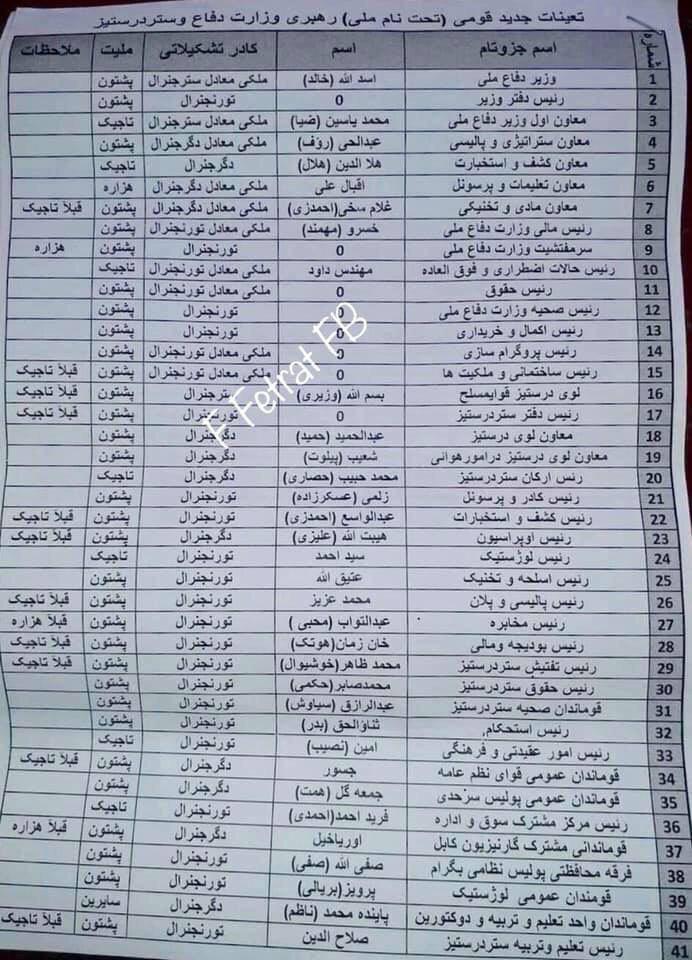 تعینات جدید قومی (تحت نام ملی) رهبری وزارت دفاع وستردرستیز
شماره اسم جزوتام اسم کادر تشکیلاتی ملیت ملاحظات
1 وزیر دفاع ملی اسد الله (خالد) ملکی معادل سترجنرال پشتون
2 رئیس دفتر وزیر 0 تورنجنرال پشتون
3 معاون اول وزیر دفاع ملی محمد یاسین (ضیا) ملکی معادل سترجنرال تاجیک
4 معاون ستراتیژی و پالیسی عبدالحی (رؤف) ملکی معادل دگرجنرال پشتون
5 معاون کشف و استخبارت هلا الدین (هلال) دگرجنرال تاجیک
6 معاون تعلیمات و پرسونل اقبال علی ملکی معادل دگرجنرال هزاره
7 معاون مادی و تخنیکی غلام سخی(احمدزی) ملکی معادل دگرجنرال پشتون قبلاً تاجیک
8 رئیس مالی وزارت دفاع ملی خسرو (مهمند) ملکی معادل تورنجنرال پشتون
9 سرمفتشیت وزارت دفاع ملی 0 تورنجنرال پشتون هزاره
10 رئیس حالات اضطراری و فوق العاده مهندس داود ملکی معادل تورنجنرال تاجیک
11 رئیس حقوق 0 ملکی معادل تورنجنرال پشتون
12 رئیس صحیه وزارت دفاع ملی 0 تورنجنرال پشتون
13 رئیس اکمال و خریداری 0 تورنجنرال پشتون
14 رئیس پروگرام سازی 0 ملکی معادل تورنجنرال پشتون
15 رئیس ساختمانی و ملکیت ها 0 ملکی معادل تورنجنرال پشتون قبلاً تاجیک
16 لوی درستیز قوایمسلح بسم الله (وزیری) سترجنرال پشتون قبلاً تاجیک
17 رئیس دفتر ستردرستیز 0 تورنجنرال پشتون قبلاً تاجیک
18 معاون لوی درستیز عبدالحمید (حمید) دگرجنرال پشتون
19 معاون لوی درستیز درامورهوائی شعیب (پیلوت) دگرجنرال پشتون
20 رئس ارکان ستردرستیز محمد حبیب (حصاری) دگرجنرال تاجیک
21 رئیس کادر و پرسونل زلمی (عسکرزاده) تورنجنرال پشتون
22 رئس کشف و استخبارات عبدالواسع (احمدزی) تورنجنرال پشتون قبلاً تاجیک
23 رئیس اوپراسیون هیبت الله (علیزی) دگرجنرال پشتون قبلاً تاجیک
24 رئیس لوژستیک سید احمد تورنجنرال تاجیک
25 رئیس اسلحه و تخنیک عتیق الله تورنجنرال پشتون
26 رئیس پالیسی و پلان محمد عزیز تورنجنرال پشتون قبلاً تاجیک
27 رئیس مخابره عبدالتواب (محبی) تورنجنرال پشتون قبلاً هزاره
28 رئیس بودیجه ومالی خان زمان(هوتک) تورنجنرال پشتون قبلاً تاجیک
29 رئیس تفتیش ستردرستیز محمد ظاهر(خوشیوال) تورنجنرال پشتون قبلاً تاجیک
30 رئیس حقوق ستردرستیز محمدصابر(حکمی) تورنجنرال پشتون
31 قوماندان صحیه ستردرستیز عبدالرازق (سیاوش) تورنجنرال پشتون
32 رئیس استحکام ثناؤالحق (بدر) تورنجنرال پشتون
33 رئیس امور عقیدتی و فرهنگی امین (نصیب) تورنجنرال تاجیک
34 قوماندان عمومی قوای نظم عامه جسور دگرجنرال پشتون قبلاً تاجیک
35 قوماندان عمومی پولیس سرحدی جمعه گل (همت) دگرجنرال پشتون
36 رئیس مرکز مشترک سوق و اداره فرید احمد(احمدی) تورنجنرال تاجیک
37 قوماندانی مشترک گارنیزیون کابل اوریاخیل دگرجنرال پشتون قبلاً هزاره
38 فرقه محافظتی پولیس نظامی بگرام صفی الله (صفی) تورنجنرال پشتون
39 قومندان عمومی لوژستیک پرویز(بریالی) تورنجنرال پشتون
40 قوماندان واحد تعلیم و تربیه و دوکتورین پاینده محمد (ناظم) دگرجنرال سایرین
41 رئیس تعلیم وتربیه ستردرستیز صلاح الدین تورنجنرال پشتون قبلاً تاجیک
F Fetrat FB